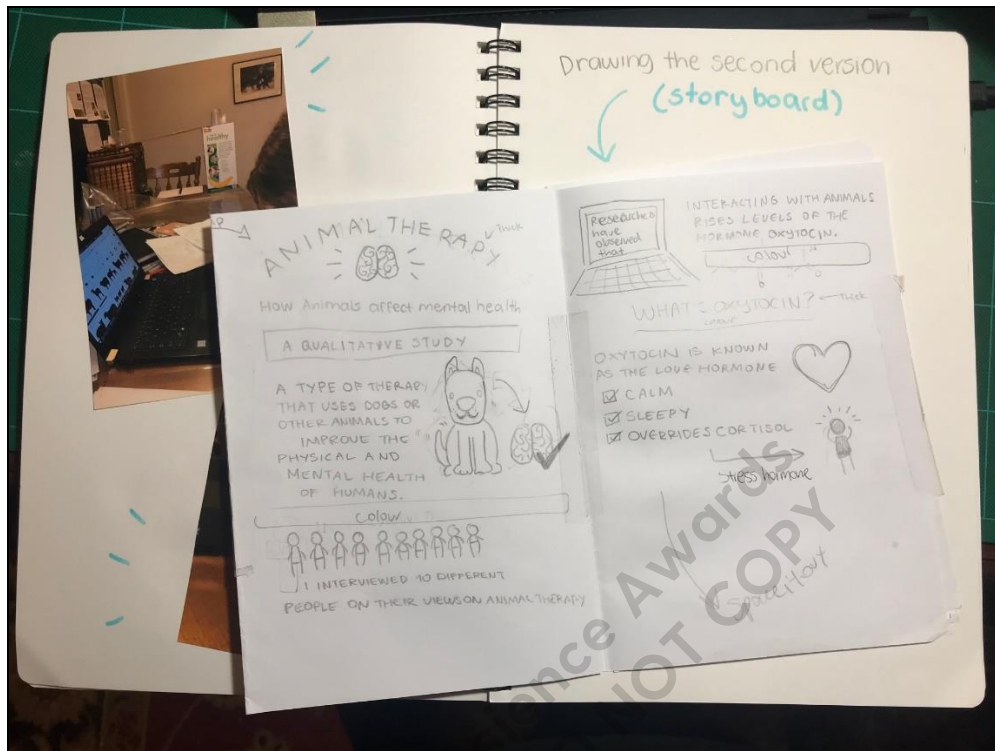 Drawing the second version
(storyboard)
ANIMAL THERAPY
Thick
How Animals affect mental health
A QUALITATIVE STUDY
A TYPE OF THERAPY
THAT USES DOGS OR
OTHER ANIMALS TO
IMPROVE THE
PHYSICAL AND
MENTAL HEALTH
OF HUMANS.
colour
I INTERVIEWED 10 DIFFERENT
PEOPLE ON THEIR VIEWS ON ANIMAL THERAPY
Researchers
have
observed
that
INTERACTING WITH ANIMALS
RISES LEVELS OF THE
HORMONE OXYTOCIN.
colour
WHAT IS OXYTOCIN?
Thick
colour
OXYTOCIN IS KNOWN
AS THE LOVE HORMONE
CALM
SLEEPY
OVERRIDES CORTISOL
Stress hormone
Space it out
ence Awards
NOT COPY